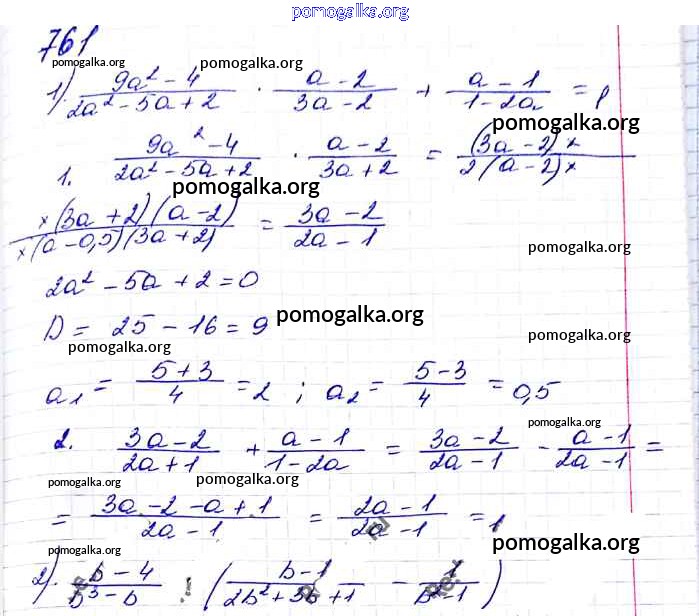 pomogalka.org
761
pomogalka.org pomogalka.org
1). (9a² - 4)/(2a² - 5a + 2) · (a - 2)/(3a - 2) + (a - 1)/(1 - 2a) =
pomogalka.org
1. (9a² - 4)/(2a² - 5a + 2) · (a - 2)/(3a + 2) = ((3a - 2) ×)/(2(a - 2) ×
pomogalka.org
(× (3a + 2)(a - 2))/(× (a - 0,5)(3a + 2)) = (3a - 2)/(2a - 1)
pomogalka.org
2a² - 5a + 2 = 0
D = 25 - 16 = 9
pomogalka.org
pomogalka.org pomogalka.org
a₁ = (5 + 3)/4 = 2 ; a₂ = (5 - 3)/4 = 0,5
pomogalka.org
2. (3a - 2)/(2a + 1) + (a - 1)/(1 - 2a) = (3a - 2)/(2a - 1) - (a - 1)/(2a - 1) =
pomogalka.org pomogalka.org
= (3a - 2 - a + 1)/(2a - 1) = (2a - 1)/(2a - 1) = 1
pomogalka.org pomogalka.org
2). (b - 4)/(b³ - b) : ((b - 1)/(2b² + 3b + 1) - 1/(b² - 1))